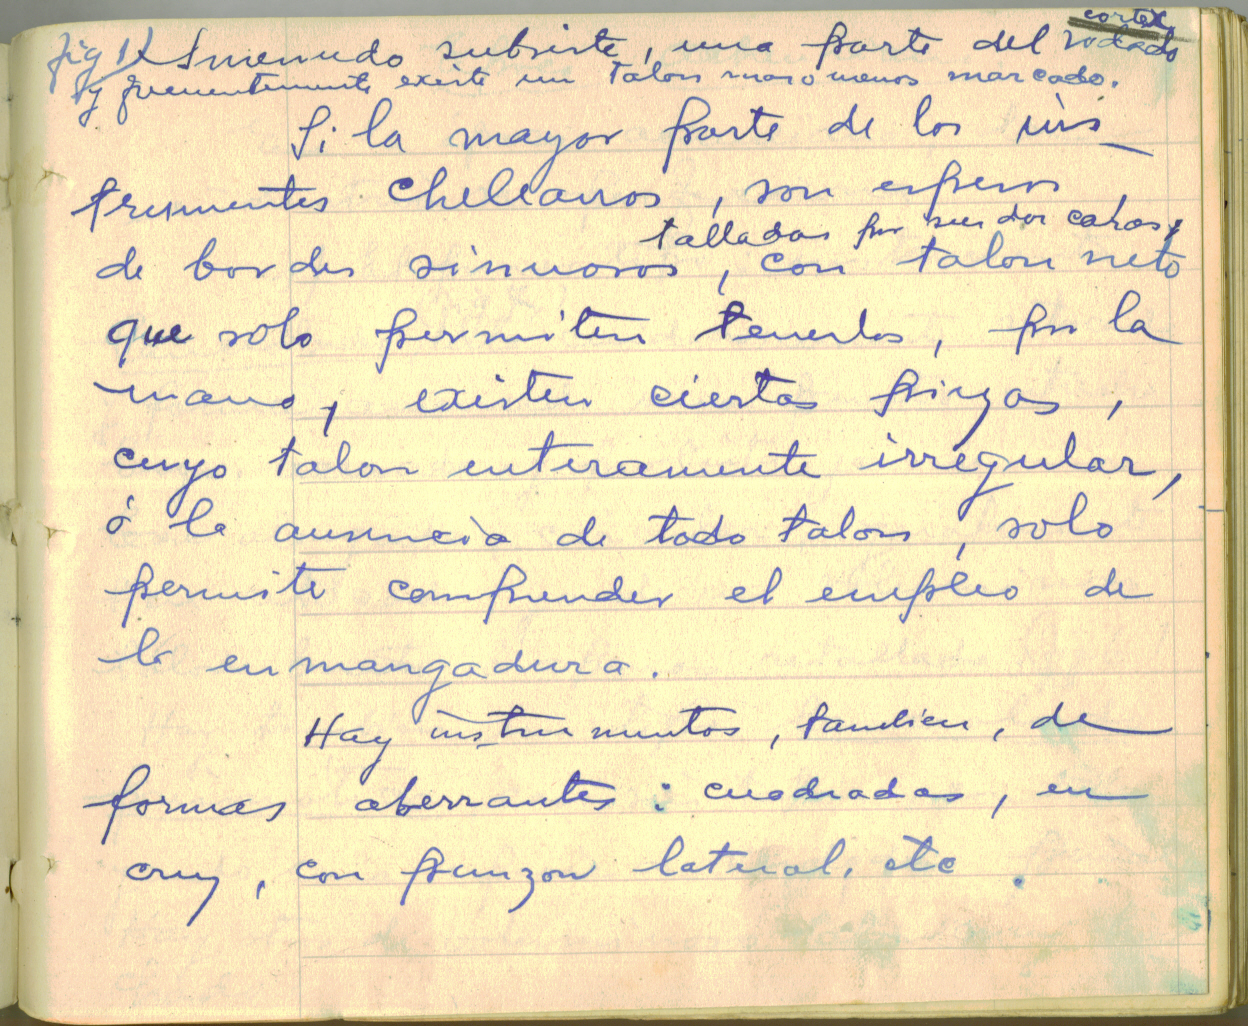 cortex
fig 1) A menudo subsiste, una parte del rodado
y frecuentemente existe un talon mas o menos marcado.
Si la mayor parte de los ins_
trumentos Chelleanos, son espesos,
talladas por sus dos caras,
de bordes sinuosos, con talon neto
que solo permiten tenerlos, por la
mano, existen ciertas piezas,
cuyo talon enteramente irregular,
ó la ausencia de todo talon, solo
permite comprender el empleo de
la enmangadura.
Hay instrumentos, tambien, de
formas aberrantes: cuadradas, en
cruz, con punzon lateral, etc.